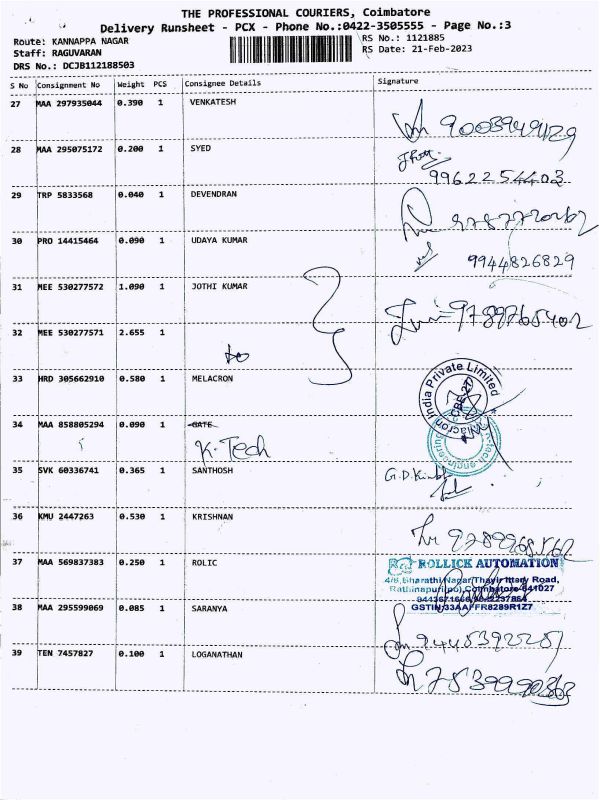 THE PROFESSIONAL COURIERS, Coimbatore
Delivery Runsheet - PCX - Phone No.:0422-3505555 - Page No.:3
Route: KANNAPPA NAGAR
Staff: RAGUVARAN
DRS No.: DCJB112188503
RS No.: 1121885
RS Date: 21-Feb-2023
S No Consignment No Weight PCS Consignee Details Signature
27 MAA 297935044 0.390 1 VENKATESH
28 MAA 295075172 0.200 1 SYED
9962254403
29 TRP 5833568 0.040 1 DEVENDRAN
30 PRO 14415464 0.090 1 UDAYA KUMAR
9944826829
31 MEE 530277572 1.090 1 JOTHI KUMAR
32 MEE 530277571 2.655 1
33 HRD 305662910 0.580 1 MELACRON
India Private Limited
CBE-27
34 MAA 858805294 0.090 1 GATE
K-Tech
35 SVK 60336741 0.365 1 SANTHOSH
36 KMU 2447263 0.530 1 KRISHNAN
37 MAA 569837383 0.250 1 ROLIC
ROLLICK AUTOMATION
38 MAA 295599069 0.085 1 SARANYA
39 TEN 7457827 0.100 1 LOGANATHAN